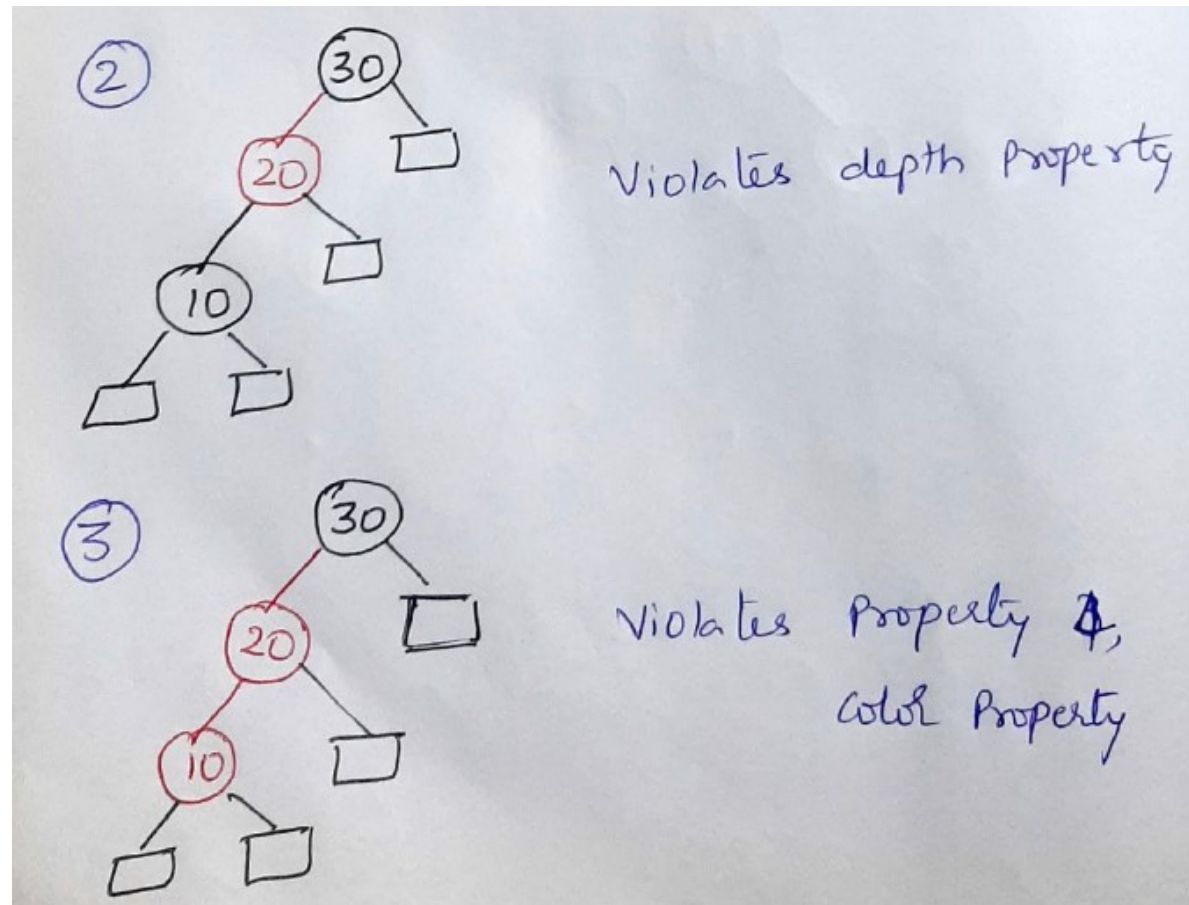 2
30
20
10
Violates depth Property
3
30
20
10
Violates Property 4,
Color Property